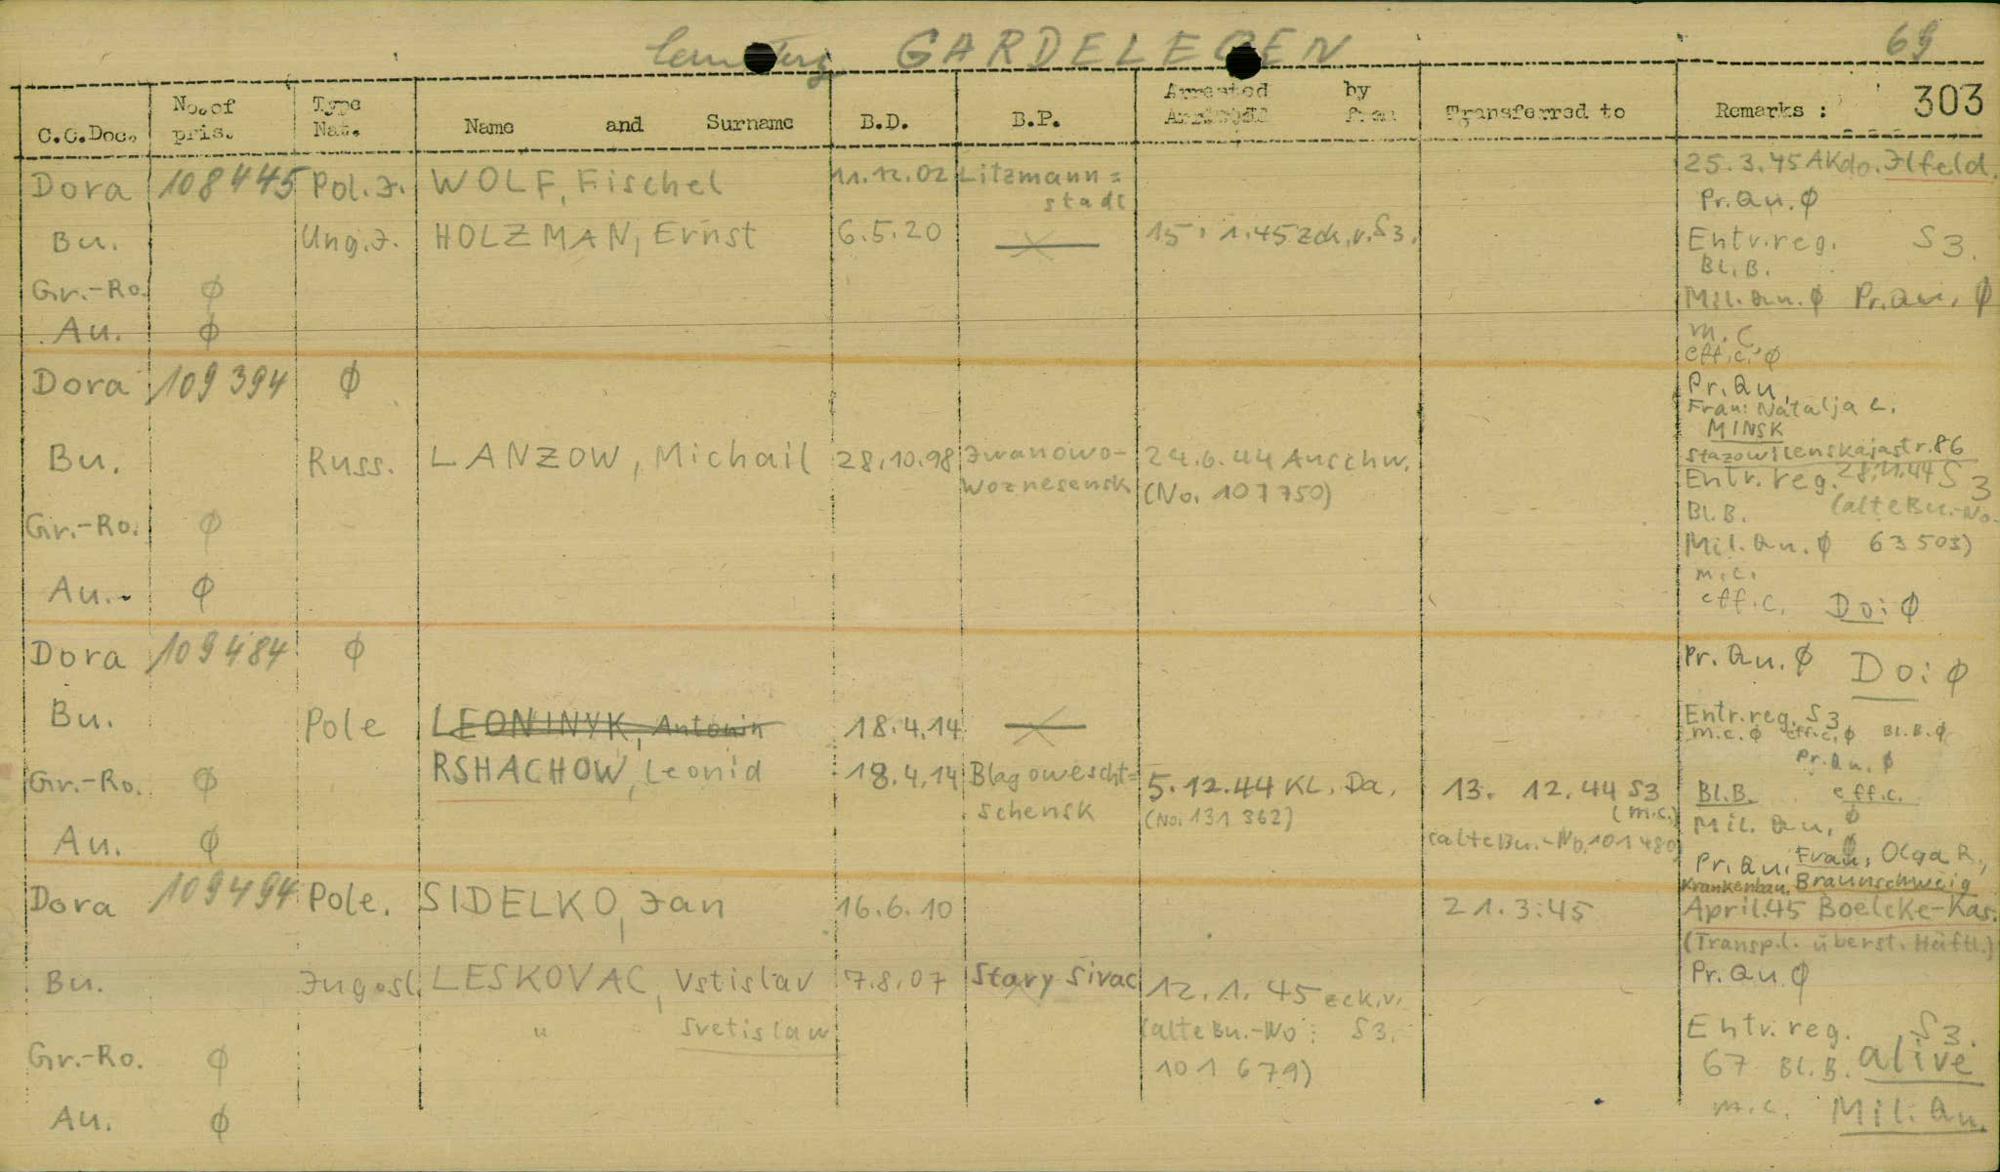 GARDELEGEN 69
C.C.Doc. No. of pris. Type Nat. Name and Surname B.D. B.P. Arrested by from Transferred to Remarks : 303
Dora 108445 Pol. J. WOLF, Fischel 11.12.02 Litzmann= stadt 25.3.45 AKdo. Ilfeld.
Pr. Qu. Ø
Bu. Ung. J. HOLZMAN, Ernst 6.5.20 15. 1.45 zck. v. S3. Entr. reg. S3.
Bl. B.
Gr.-Ro. Ø Mil. Qu. Ø Pr. Qu. Ø
Au. Ø m. c.
eff. c. Ø
Dora 109394 Ø Pr. Qu.
Frau: Natalja L.
MINSK
Bu. Russ. LANZOW, Michail 28.10.98 Iwanowo- Woznesensk 24.6.44 Auschw. (No. 107750) 86
Entr. reg. 28.11.44 S3
Gr.-Ro. Ø Bl. B. (alte Bu.-No.
Mil. Qu. Ø 63503)
m. c.
Au. Ø eff. c. Do: Ø
Dora 109484 Ø Pr. Qu. Ø Do: Ø
Bu. Pole LEONINYK, Antonin 18.4.14 Entr. reg. S3
m. c. Ø eff. c. Ø Bl. B. Ø
Pr. Qu. Ø
Gr.-Ro. Ø RSHACHOW, Leonid 18.4.14 Blagowescht= schensk 5.12.44 KL. Da. (No. 131362) 13. 12.44 S3 (m. c.) Bl. B. eff. c.
Mil. Qu. Ø
Au. Ø (alte Bu.-No. 101480) Pr. Qu. Ø Frau: Olga R.,
Krankenbau, Braunschweig
Dora 109494 Pole. SIDELKO, Jan 16.6.10 21.3.45 April 45 Boelcke-Kas.
(Transp. l. überst. Häftl.)
Pr. Qu. Ø
Bu. Jugosl. LESKOVAC, Vstislav 7.8.07 Stary Sivac 12. 1. 45 zck. v. S3.
" Svetislaw (alte Bu.-No: 101679) Entr. reg. S3.
Gr.-Ro. Ø 67 Bl. B. alive
Au. Ø m. c. Mil. Qu.